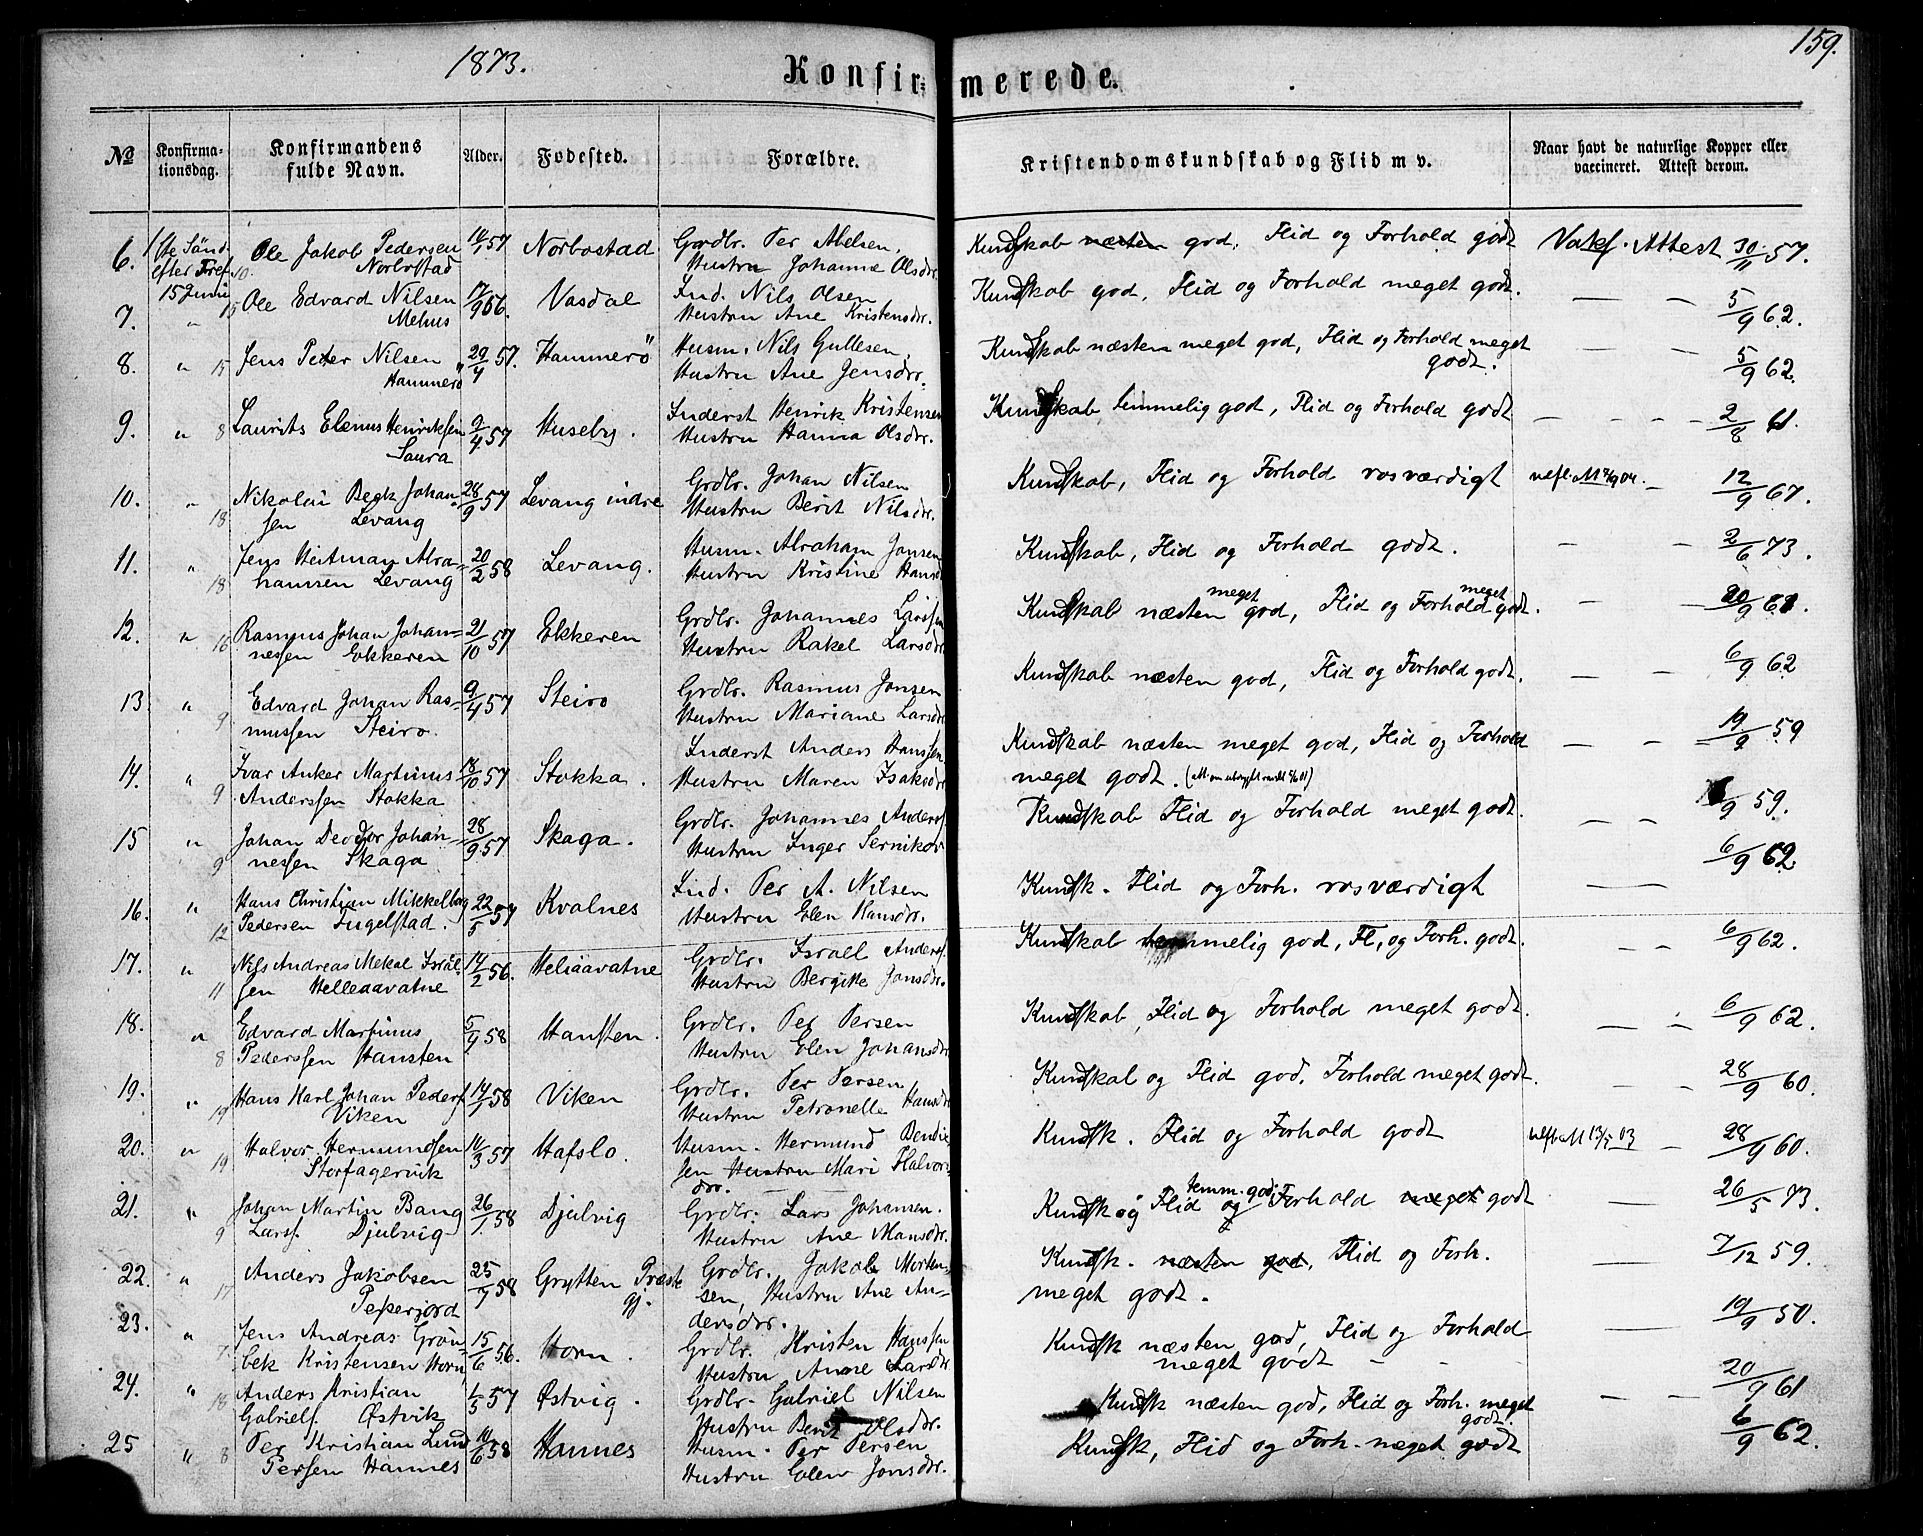 1873.
159.
Konfir= merede.
No
Konfirma-
tionsdag.
Konfirmandens
fulde Navn.
Alder.
Fødested.
Forældre.
Kristendomskundskab og Flid m v.
Naar havt de naturlige Kopper eller
vaccineret. Attest derom.
6. 1ste Sønd. Ole Jakob Pedersen 14/1 57 Norbostad Gordlr. Per Abelsen. Kundskab næsten god, Flid og Forhold godt Vakf. Attest 30/11 57.
efter Tref. Hustru Johanne Olsdr.
15 Juni
7. " 15 Ole Edvard Nilsen 17/9 56. Vasdal Ind. Nils Olsen Kundskab god, Flid og Forhold meget godt. — — 5/9 62.
Mehus Hustru Ane Kristensdr.
8. " 15 Jens Peter Nilsen 29/4 57. Hammerö Husm. Nils Gullesen, Kundskab næsten meget god, Flid og Forhold meget — — 5/9 62.
Hammerö Hustru Ane Jensdr. godt.
9. " 8 Laurits Elenus Henriksen 9/4 57 Huseby. Inderst Henrik Kristensen Kundskab temmelig god, Flid og Forhold godt — — — 2/8 61.
Saura Hustru Hanna Olsdr.
10. " 18 Nikolai Beck Johan- 28/9 57 Levang indre Grdlr. Johan Nilsen Kundskab, Flid og Forhold rosværdigt — 12/9 67.
sen Levang Hustru Berit Nilsdr.
11. " 18 Jens Heitman Abra- 20/2 58 Levang. Husm. Abraham Jonsen Kundskab, Flid og Forhold godt. — — 2/6 73.
hamsen Levang Hustru Kristine Hansd
12. " 16 Rasmus Johan Johan- 21/10 57 Ekkeren Grdlr. Johannes Larssen Kundskab næsten meget god, Flid og Forhold meget godt. — — 20/9 61.
nessen Ekkeren Hustru Rakel Larsdr
13 " 9 Edvard Johan Ras- 9/4 57 Steiro Grdlr. Rasmus Jonsen Kundskab næsten god, Flid og Forhold godt. — — 6/9 62
mussen Steiro. Hustru Mariane Larsdr
14. " 9 Ivar Anker Martinus 18/10 57 Stokka. Inderst Anders Hanssen Kundskab næsten meget god, Flid og Forhold — — 19/9 59
Anderssen Stokka Hustru Maren Isaksdr meget godt.
15 " 9 Johan Deodor Johan- 28/9 57 Skaga. Grdlr. Johannes Anders Kundskab Flid og Forhold meget godt. — — /9 59.
nessen Skaga Hustru Inger
16. " 12 Hans Christian Mikkelbog 22/5 57 Kvalnes Ind. Per A. Nilsen Kundsk. Flid og Forh. rosværdigt — 6/9 62.
Pedersen Engelstad. Hustru Elen Hansdr.
17. " 11 Nils Andreas Mekal Israel 14/2 56. Helleaavatne Grdlr. Israel Anders. Kundskab temmelig god, Fl, og Forh. godt. — — 6/9 62.
sen Helleaavatne Hustru Bergitte Jonsdr.
18. " 8 Edvard Martinus 5/4 58 Hansten. Grdlr. Per Persen Kundskab, Flid og Forhold meget godt. — — 6/9 62.
Pederssen Hansten Hustru Elen Johansdr
19. " 19 Hans Karl Johan Peders. 14/1 58 Viken Grdlr. Per Persen Kundskab og Flid god. Forhold meget godt. — — 28/9 60.
Viken Hustru Petronelle Hansdr
20. " 19 Halvor Hermundsen 14/3 57 Hafslo. Husm. Hermund Bendix Kundsk. Flid og Forhold godt — 28/9 60.
Storfagervik sen Hustru Mari Halvors
dr.
21. " 9 Johan Martin Bang 26/1 58 Djubvig Grdlr. Lars Johansen. Kundsk og Flid temm. god og Forhold meget godt — 26/5 73.
Lars. Djubvig Hustru Ane Mansdr.
22. " 17 Anders Jakobsen 25/4 58 Grytten Præste Grdlr. Jakob Morten- Kundsk. næsten god, Flid og Forh. — 7/12 59.
Peperjord gj. sen, Hustru Ane An- meget godt.
dersdr.
23. " 7 Jens Andreas Grøn- 15/6 56. Horn. Grdlr. Kristen Hanssen Kundsk næsten god, Flid og Forhold — 19/9 50.
bek Kristensen Horn, Hustru Anne Larsdr meget godt
24. " 18 Anders Kristian 1/5 57 Østvig. Grdlr. Gabriel Nilsen Kundsk næsten god, Flid og Forh. meget — — 20/9 61
Gabriels. Østvik Hustru Berit Olsdr. godt.
25 " 8 Per Kristian Lund 14/6 58 Hannes Husm. Per Persen Kundsk, Flid og Forh. meget godt 6/9 62.
Persen Hannes Hustru Elen Jonsdr.